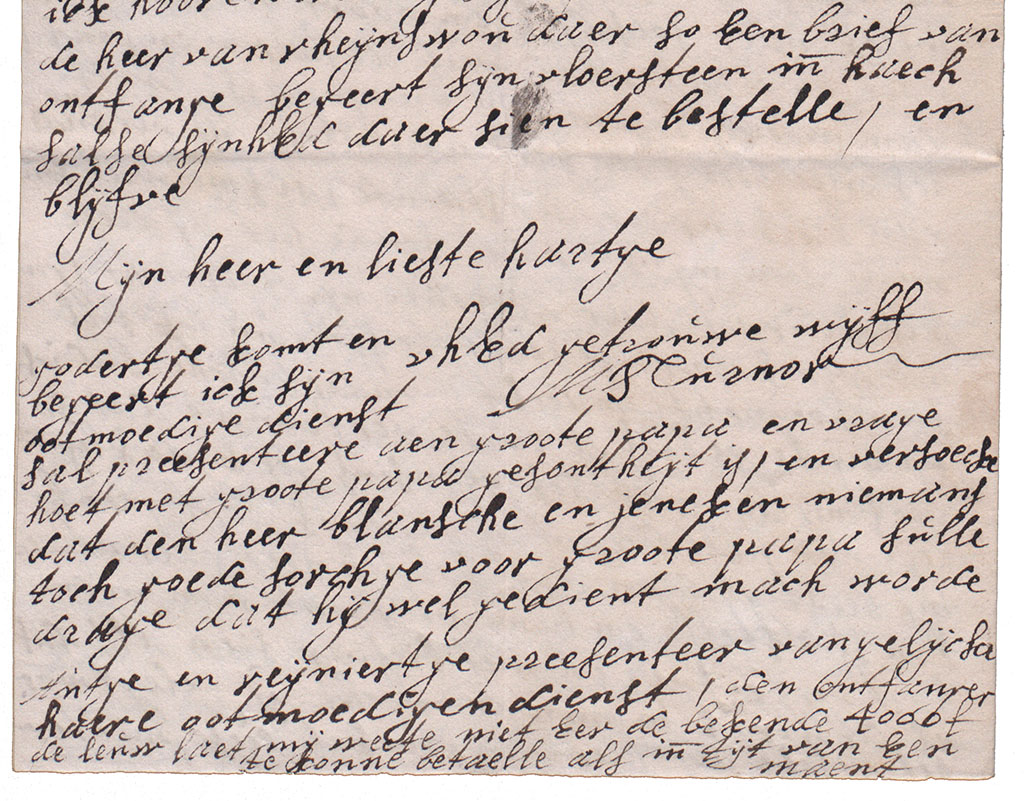 ick
de heer van rheynswoü daer so een brief van
ontfange begeert syn vloersteen in haech
salse synhEd daer sien te bestelle / en
blyfve
Mÿn heer en liefste hartge
godertge komt en
begeert ick sÿn
ootmoedige dienst
vhEd getroüwe wÿff
MSTürnor
sal preesenteere aen groote papa en vrage
hoet met groote papa gesontheÿt is / en versoecke
dat den heer blansche en jeneken niemans
toch goede sorchge voor groote papa sülle
drage dat hÿ wel gedient mach worde
Antge en reÿniertge preesenteer vangelÿcken
haere ootmoedigen dienst / den ontfanger
de leüw laet mÿ weete niet eer de bekende 4000f
te konne betaelle als in tÿt van een
maent